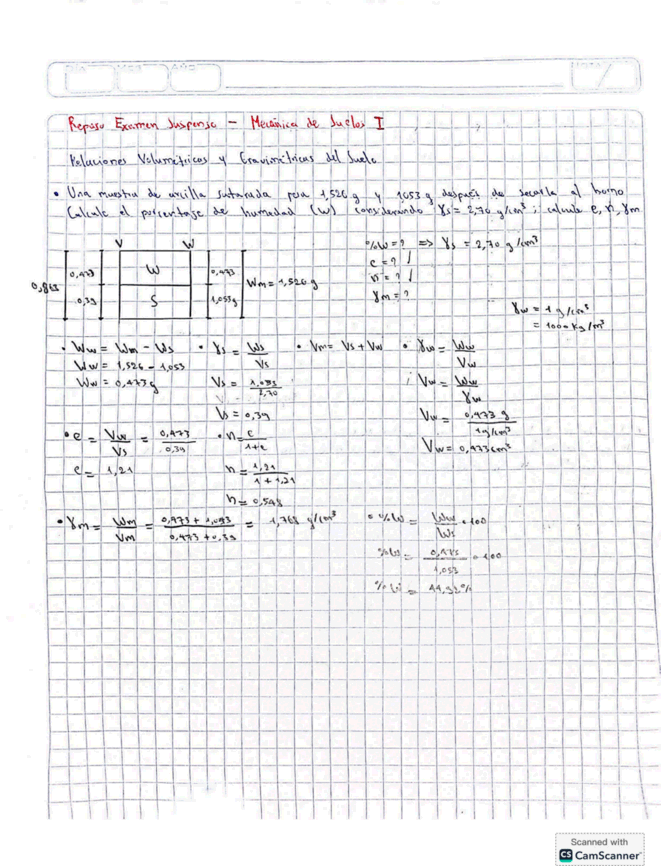 Día Mes Año Nota
Repaso Examen Suspenso - Mecánica de Suelos I
Relaciones Volumétricas y Gravimétricas del Suelo
• Una muestra de arcilla saturada pesa 1,526 g y 1,053 g después de secarla al horno
Calcule el porcentaje de humedad (W) considerando γs = 2,70 g/cm³ ; calcule e, n, γm
V W
0,863 0,473 W 0,473 Wm = 1,526 g
0,39 S 1,053g
%W = ? => γs = 2,70 g/cm³
e = ? /
n = ? /
γm = ?
γw = 1 g/cm³
= 1000 Kg/m³
• Ww = Wm - Ws
Ww = 1,526 - 1,053
Ww = 0,473 g
• γs = Ws / Vs
Vs = 1,053 / 2,70
Vs = 0,39
• Vm = Vs + Vw
• γw = Ww / Vw
Vw = Ww / γw
Vw = 0,473 g / 1g/cm³
Vw = 0,473 cm³
• e = Vw / Vs = 0,473 / 0,39
e = 1,21
• n = e / 1+e
n = 1,21 / 1 + 1,21
n = 0,548
• γm = Wm / Vm = 0,473 + 1,053 / 0,473 + 0,39 = 1,768 g/cm³
• %W = Ww / Ws • 100
%W = 0,473 / 1,053 • 100
%W = 44,92%
Scanned with
CS CamScanner